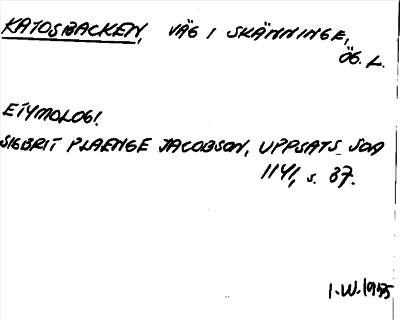 KATOSBACKEN, VÄG I SKÄNNINGE,
ÖG. L.
ETYMOLOGI.
SIGBRIT PLAENGE JACOBSON, UPPSATS SOA
1141, s. 37.
I.W. 1975